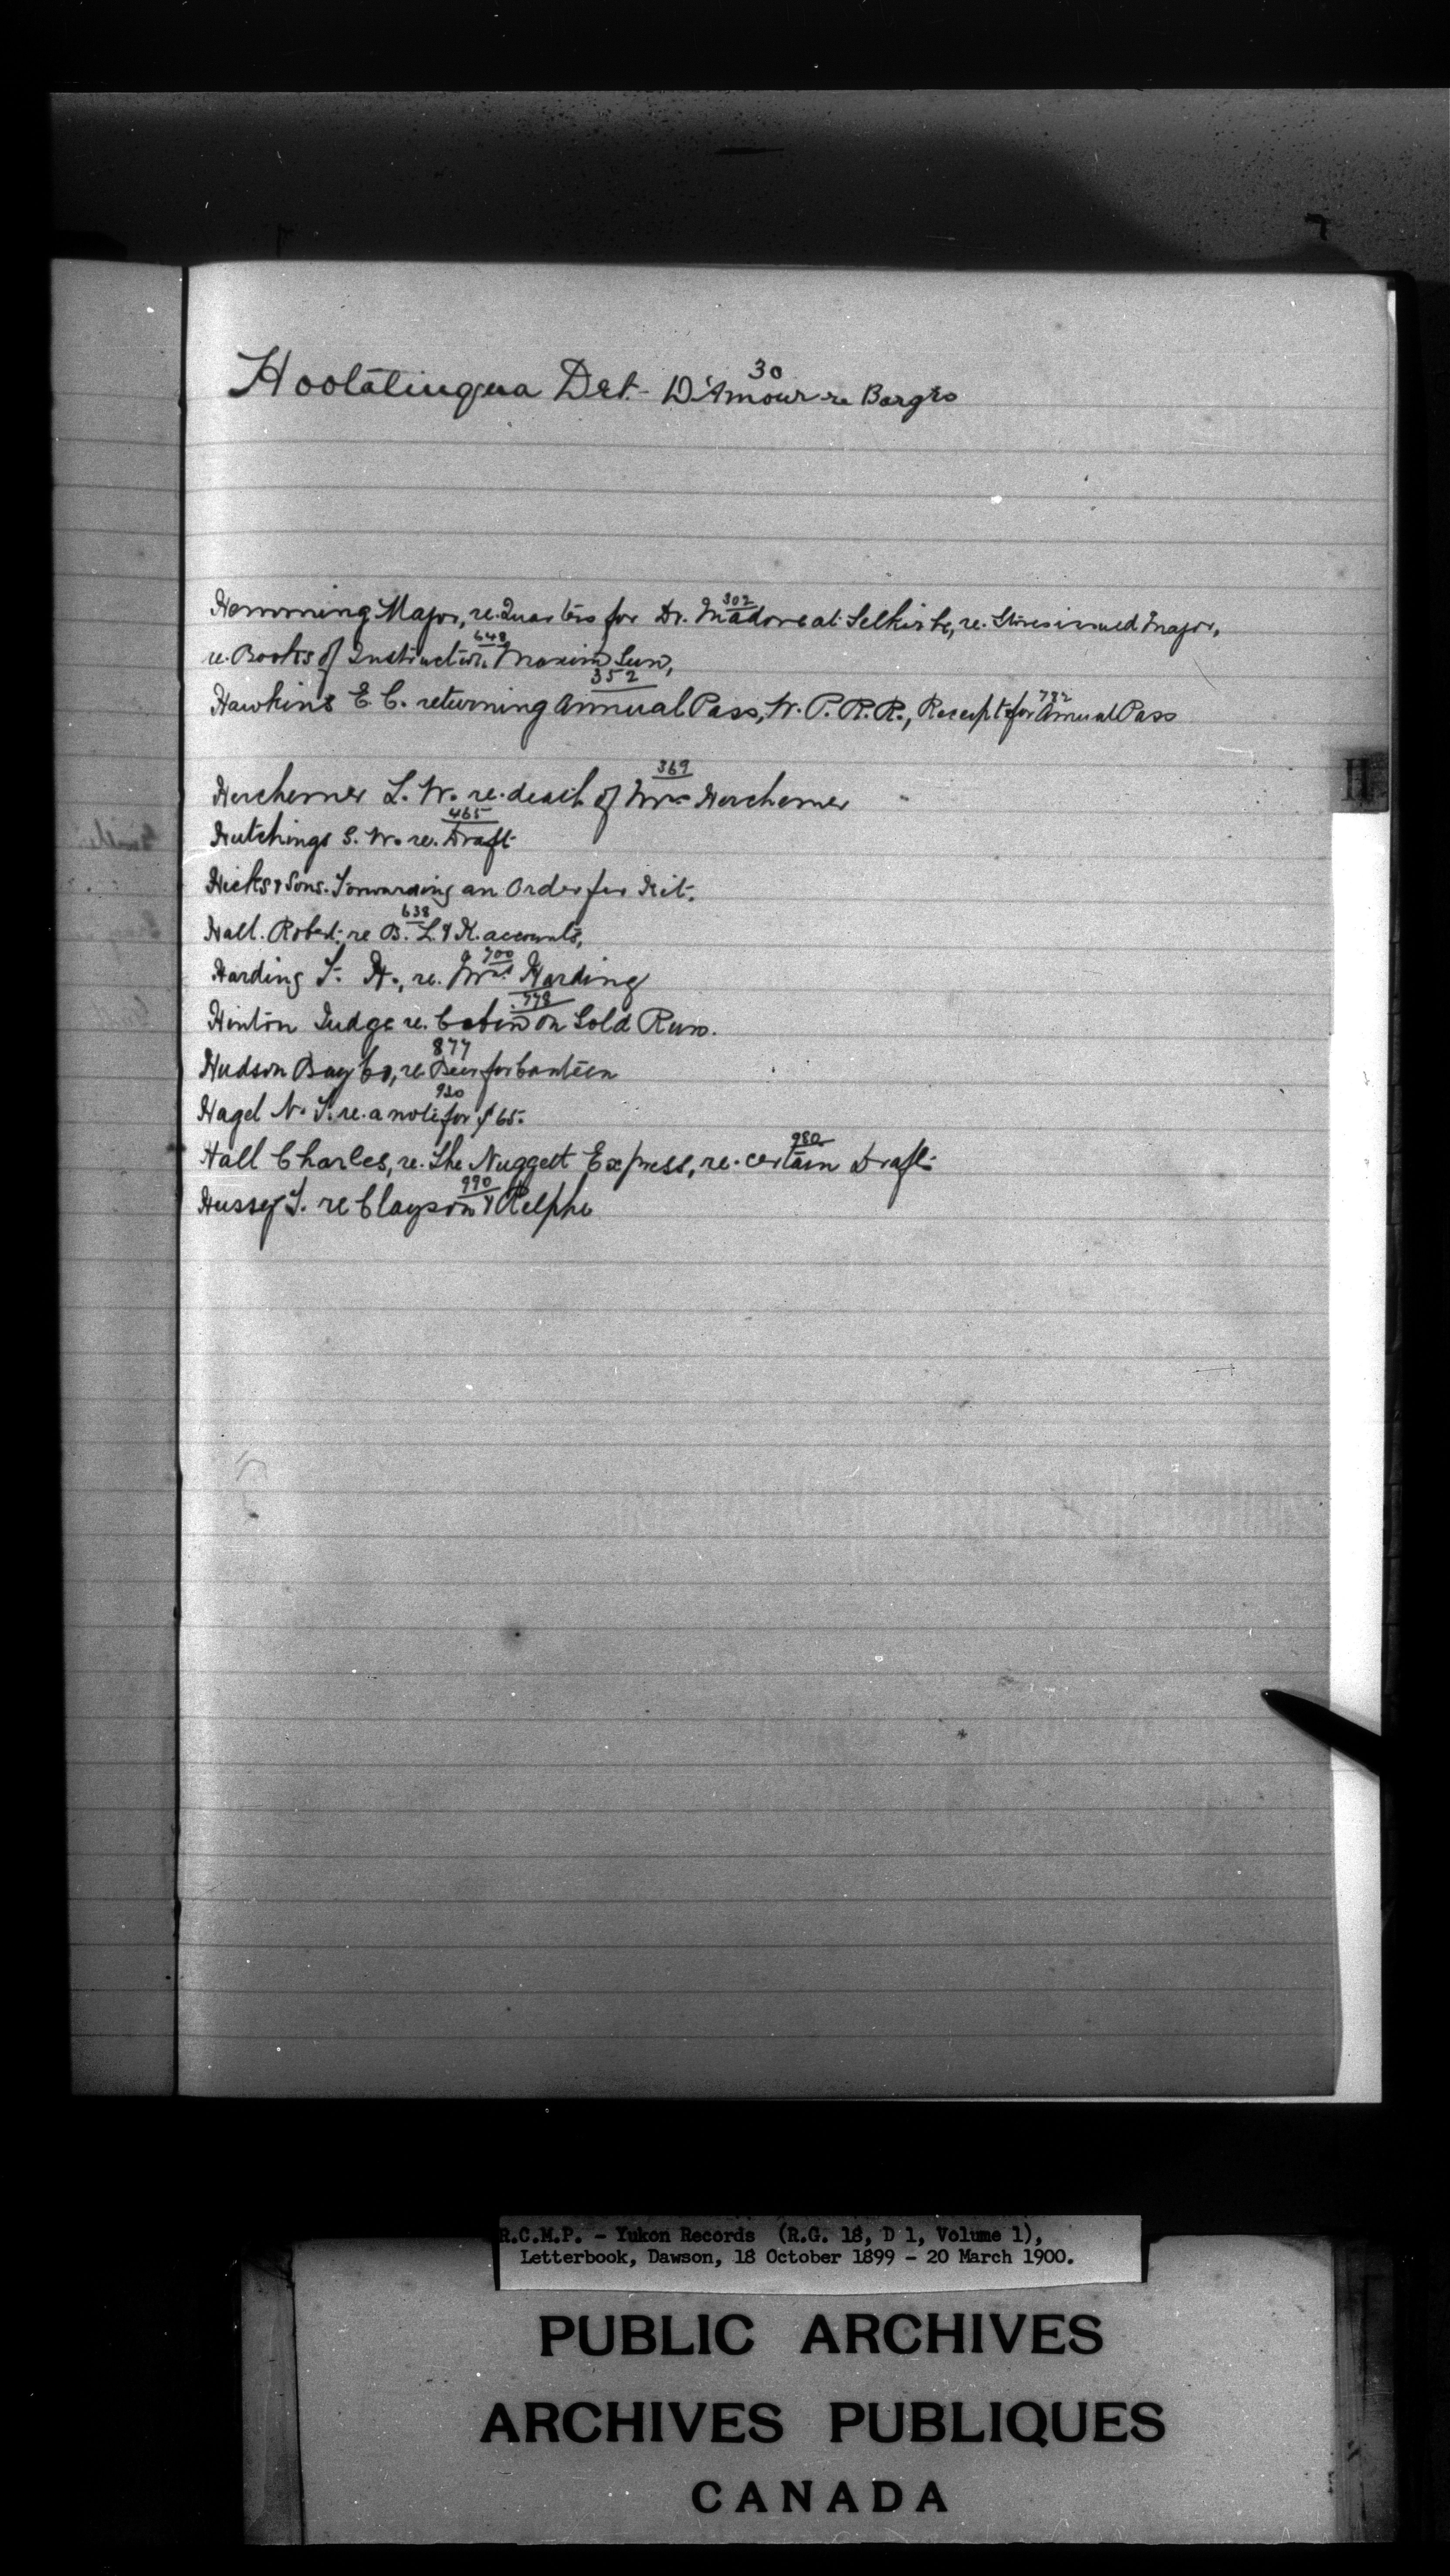 30
Hootalinqua Det - D'Amour re Barges
302
Hemming Major, re. Quarters for Dr. Madore at Selkirk, re. Stores issued Major,
648
re. Books of Instruction Maxim Gun,
352 782
Hawkins E. C. returning Annual Pass, W. P. R. R., Receipt for Annual Pass
369
Herchemer L. W. re. death of Mrs Herchemer
H
465
Hutchings S. W. re. Draft
Hicks & Sons. Forwarding an Order for Kit.
638
Hall. Robert. re B. L. & K. accounts,
700
Harding T. H., re. Mrs Harding
778
Hinton Judge re. Cabin on Gold Run.
877
Hudson Bay Co, re Beer for Canteen
920
Hagel N. F. re. a note for $65.
980
Hall Charles, re. The Nuggett Express, re. certain Draft
990
Hussey F. re Clayson & Relphe
R.C.M.P. - Yukon Records (R.G. 18, D 1, Volume 1),
Letterbook, Dawson, 18 October 1899 - 20 March 1900.
PUBLIC ARCHIVES
ARCHIVES PUBLIQUES
CANADA